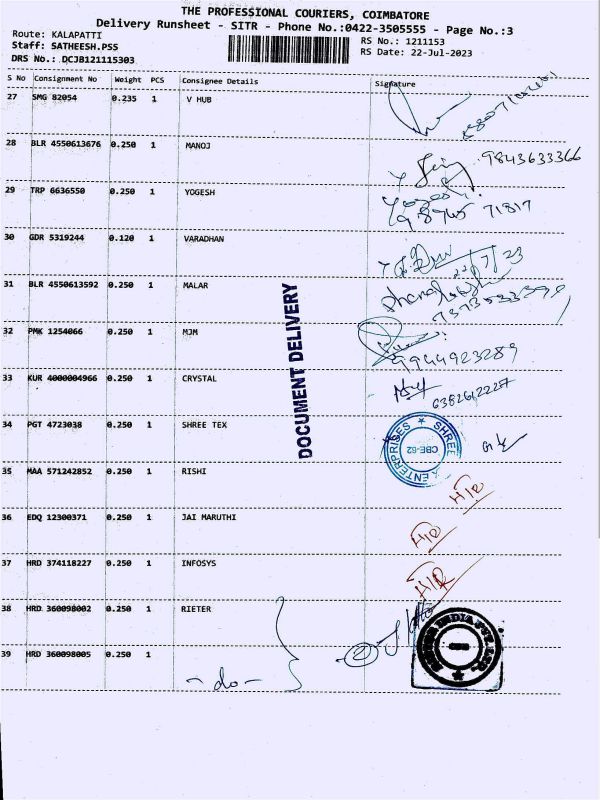 THE PROFESSIONAL COURIERS, COIMBATORE
Delivery Runsheet - SITR - Phone No.:0422-3505555 - Page No.:3
Route: KALAPATTI
Staff: SATHEESH.PSS
DRS No.: DCJB121115303
RS No.: 1211153
RS Date: 22-Jul-2023
S No Consignment No Weight PCS Consignee Details Signature
27 SMG 82054 0.235 1 V HUB
28 BLR 4550613676 0.250 1 MANOJ 9843633366
29 TRP 6636550 0.250 1 YOGESH
71817
30 GDR 5319244 0.120 1 VARADHAN
31 BLR 4550613592 0.250 1 MALAR
32 PMK 1254066 0.250 1 MJM
9944923289
33 KUR 4000004966 0.250 1 CRYSTAL
34 PGT 4723038 0.250 1 SHREE TEX
SHREE ENTERPRISES
CBE-62
35 MAA 571242852 0.250 1 RISHI
36 EDQ 12300371 0.250 1 JAI MARUTHI
37 HRD 374118227 0.250 1 INFOSYS
38 HRD 360098002 0.250 1 RIETER
39 HRD 360098005 0.250 1 -do-
INDIA PVT. LTD.
DOCUMENT DELIVERY